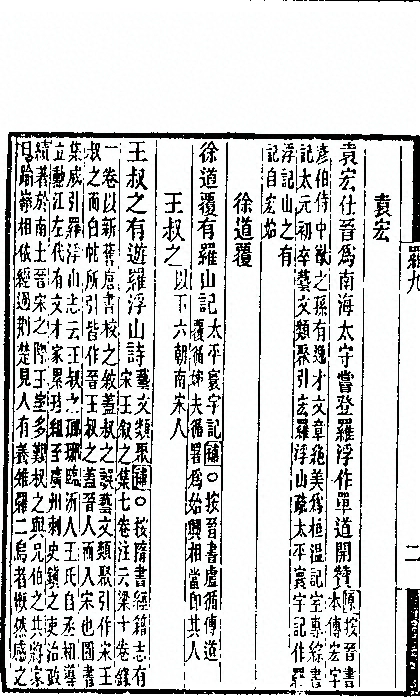 羅九
二
袁宏
袁宏仕晉爲南海太守嘗登羅浮作單道開贊
原按晉書
本傳宏字
彥伯侍中猷之孫有逸才文章絶美爲桓溫記室專綜書
記太元初卒藝文類聚引宏羅浮山疏太平寰宇記作羅
浮記山之有
記自宏始
徐道覆
徐道覆有羅山記
太平寰宇記補○按晉書盧循傳道
覆循姊夫循署爲始興相當即其人
王叔之 以下六朝南宋人
王叔之有遊羅浮山詩
藝文類聚補○按隋書經籍志有
宋王叙之集七卷注云梁十卷錄
一卷以新舊唐書校之敘蓋叔之誤藝文類聚引作宋王
叔之而白帖所引皆作晉王叔之蓋晉人而入宋也圖書
集成引羅浮山志云王叔之瑯琊臨沂人王氏自丞相導
立勳江左代有文才家累珪組至廣州刺史鎮之吏治政
績著於南土晉宋之際王室多難叔之與兄伯之共將家
口踰嶺相依經過荆楚見人有養雉羅二鳥者慨然感之